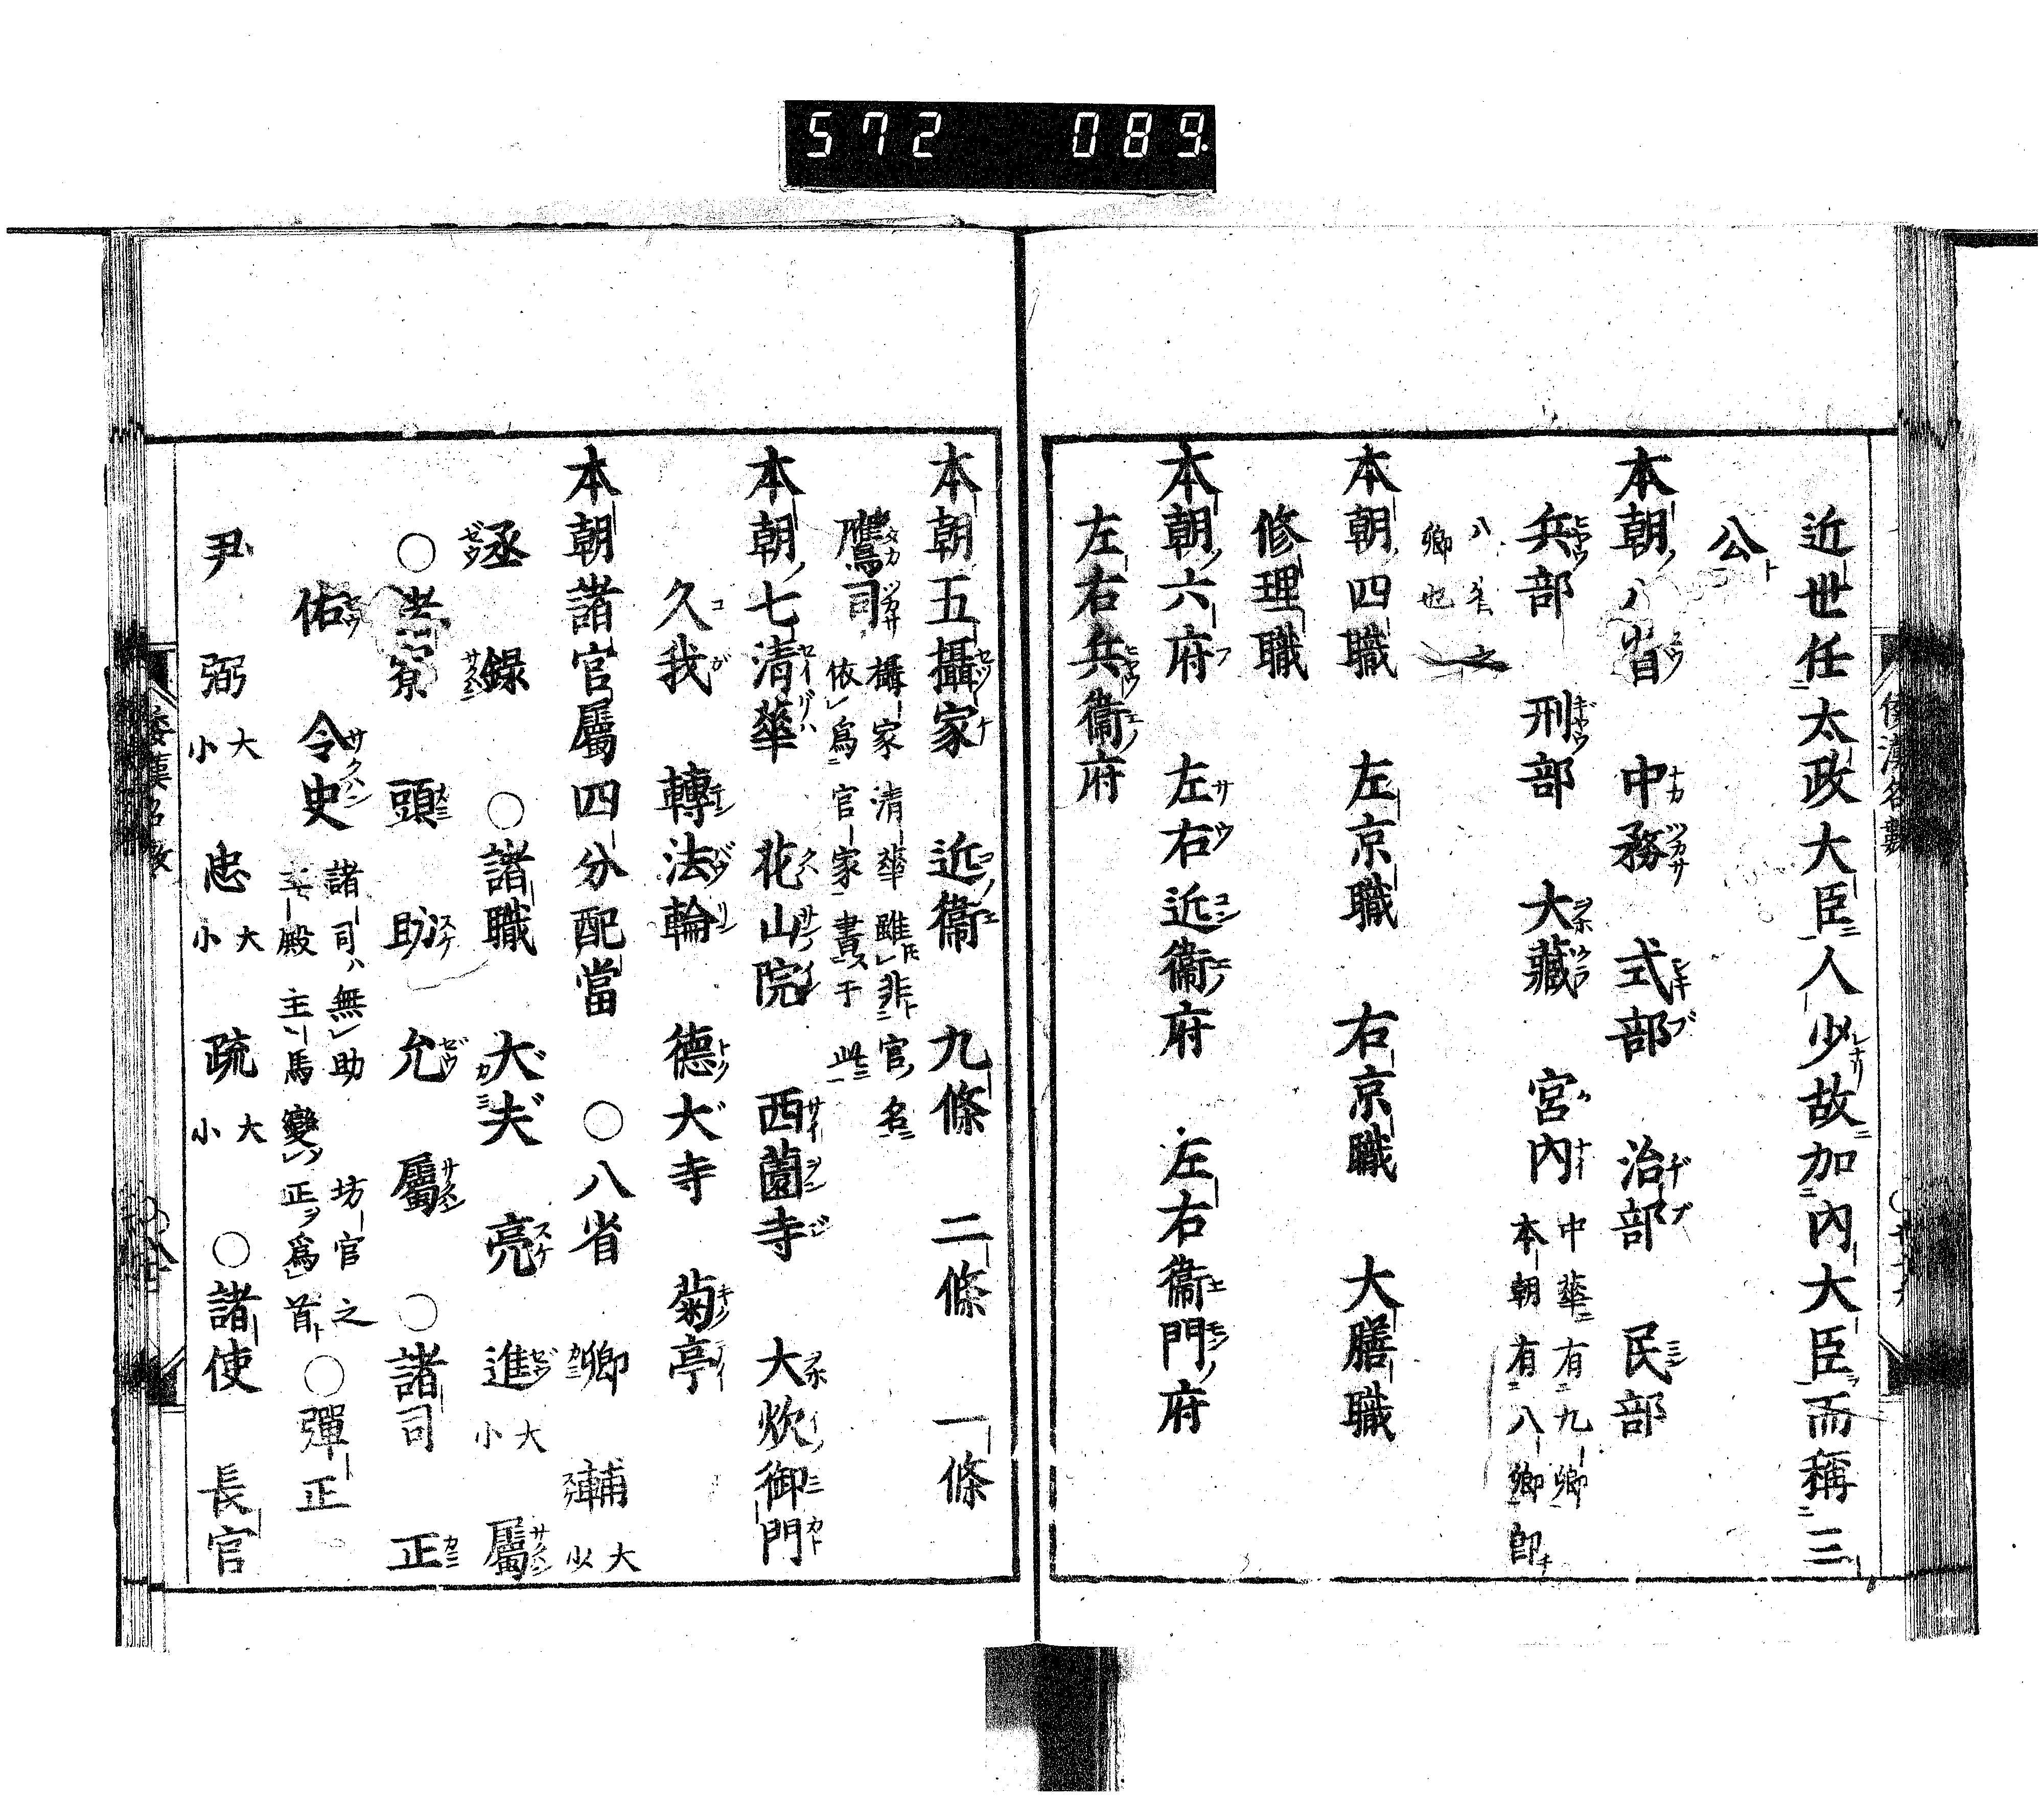 572 089
近世任太政大臣人少故加内大臣而稱三
公
本朝八省 中務 式部 治部 民部
兵部 刑部 大藏 宮内 中華有九卿
本朝有八卿即
八省之
卿也
本朝四職 左京職 右京職 大膳職
修理職
本朝六府 左右近衞府 左右衞門府
左右兵衞府
本朝五攝家 近衞 九條 二條 一條
鷹司 攝家清華雖非官名
依爲官家書于此
本朝七清華 花山院 西薗寺 大炊御門
久我 轉法輪 德大寺 菊亭
本朝諸官屬四分配當 ○八省 卿 輔 大少
丞 録 ○諸職 大夫 亮 進 大小 屬
○諸寮 頭 助 允 屬 ○諸司 正
佑 令史 諸司ハ無助 坊官之
主殿 主馬變正爲首 ○彈正
尹 弼 大小 忠 大小 疏 大小 ○諸使 長官
倭漢名數